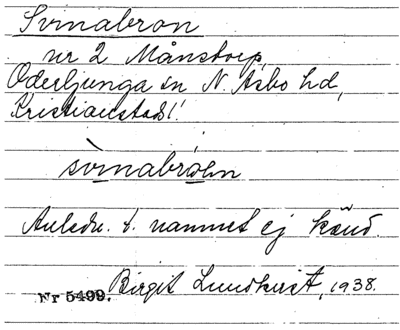 Svinabron
nr 2 Månstorp,
Oderljunga sn N. Åsbo hd,
Kristianstads l.
svinabroen
Anledn. t. namnet ej känd.
Birgit Lundkvist, 1938.
Nr 5499.